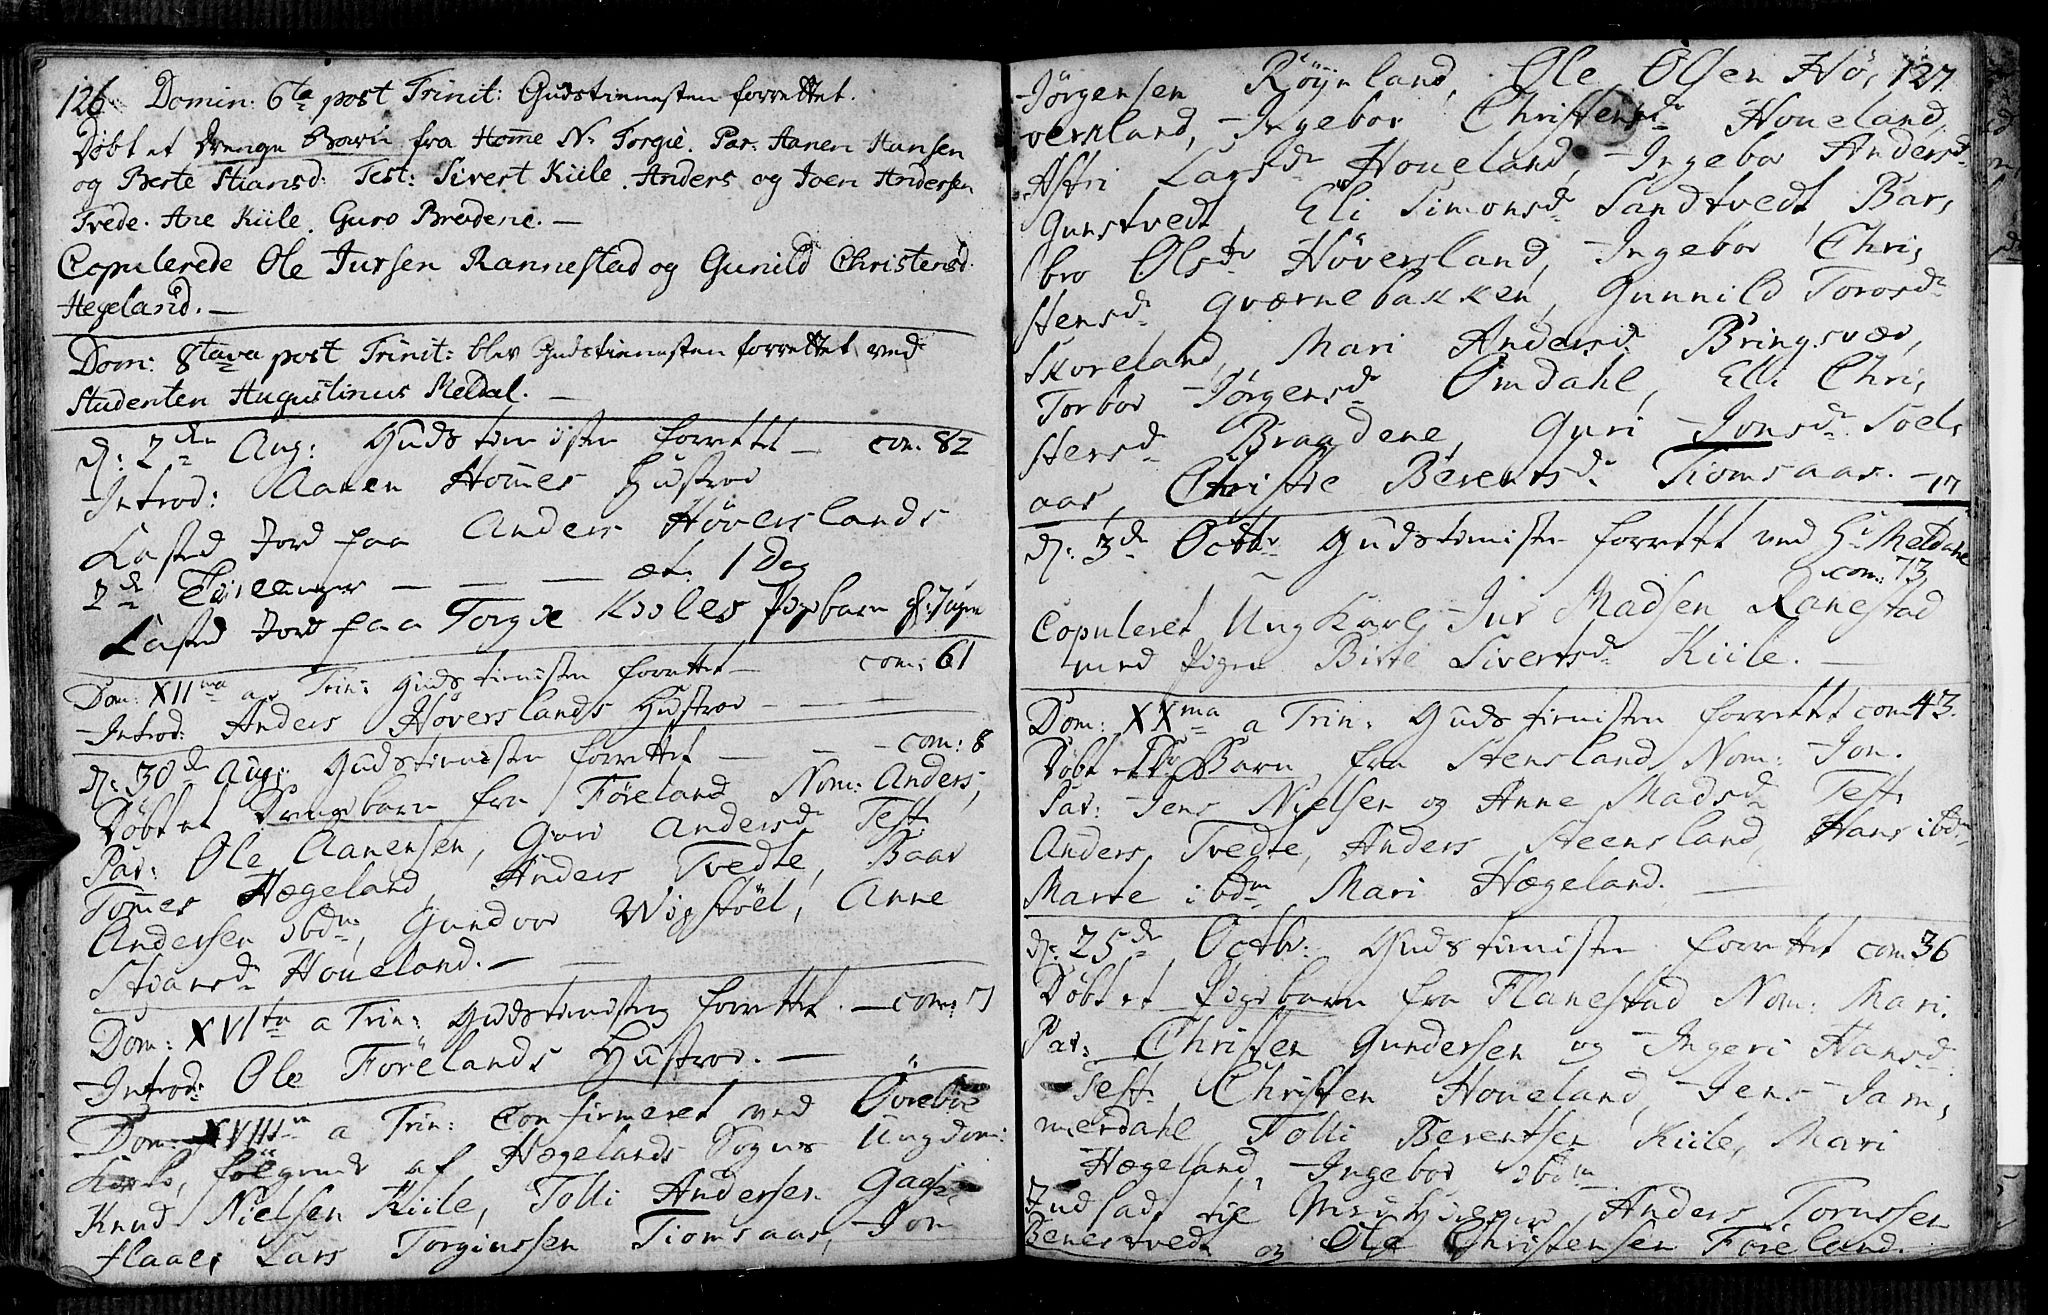 126. Domin: 6ta post Trinit: Gudstienesten forrettet.
Døbt et Drenge Barn fra Home N: Torgie. Par: Aanen Hansen
og Berte Stiansd: Test: Sivert Kiile. Anders og Joen Andersen
Tvede. Ane Kiile. Guro Bredene. —
Copulerede Ole Jursen Rannestad og Gunild Christensd.
Hegeland. —
Dom: 8tava post Trinit: blev Gudstienesten forrettet ved
Studenten Augustinus Meldal. —
d: 2den Aug: Gudstienisten forrettet — com. 82
Introd: Aanen Hommes Hustroe
Kasted Jord paa Anders Höverslands
2de Tvillinger — — — æt. 1 Dag
Kasted Jord paa Torgie Kiiles Pigebarn
Dom: XIIma a Trin: Gudstienisten forrettet — com: 61
Introd: Anders Höverslands Hustroe — — —
d: 30de Aug: Gudstienesten forrettet — — com: 8
Døbt et Drengebarn fra Föreland Nom: Anders,
Par: Ole Aanensen, Guro Andersdr Test:
Tommes Hægeland, Anders Tvedte, Baar
Andersen ibdm, Gundvor Wigstöel, Anne
Stiansdr Houeland. — —
Dom: XVIta a Trin: Gudstienisten forrettet. — com: 7
Introd: Ole Förelands Hustroe. —
Dom XVIII a Trin: Confirmeret ved Övrebøe
Kirke, fölgende af Hægelands Sogns Ungdom:
Knud Nielsen Kiile, Tolli Andersen Gaase
flaae, Lars Torgiussen Tiomsaas, Jon
Jörgensen Röÿnland, Ole Olsen Hö, 127.
versland, Ingebor Christensdr Houeland,
Astri Larsdr Houeland, Ingebor Andersdr
Gunstvedt, Eli Simonsdr Sandtvedt, Bar,
bro Olsdr Höversland, Ingebor Chri,
stensdr Qværnebakken, Gunnild Torosdr
Skoreland, Mari Andersdr Bringsvær,
Torbor Jörgensdr Omdahl, Elli Chri,
stensdr Braadene, Guri Jonsdr Soel,
aas, Christie Berentsdr Tiomsaas. — 17
d: 3de Octbr Gudstienisten forrettet ved Hr Meldahl
com: 73
Copuleret Ung Karl Jur Madsen Ranestad
med Pigen Birte Sivertsdr Kiile. —
Dom: XXma a Trin: Gudstienisten forrettet com 43.
Døbt et Barn fra Stensland Nom: Jon.
Par: Jens Nielsen og Anne Madsdr Test:
Anders Tvedte, Anders Steensland, Hans ibdm
Marte ibdm Mari Hægeland. —
d: 25de Octbr: Gudstienisten forrettet com: 36
Døbt et Pigebarn fra Flanestad Nom: Mari.
Par: Christen Gundersen og Ingeri Hansdr
Test: Christen Houeland, Jens Jam,
merdahl, Tolli Berentsen Kiile, Mari
Hægeland, Ingebor ibdm
Indsadt til Anders Torussen
Benestvedt og Ole Christensen Föreland.